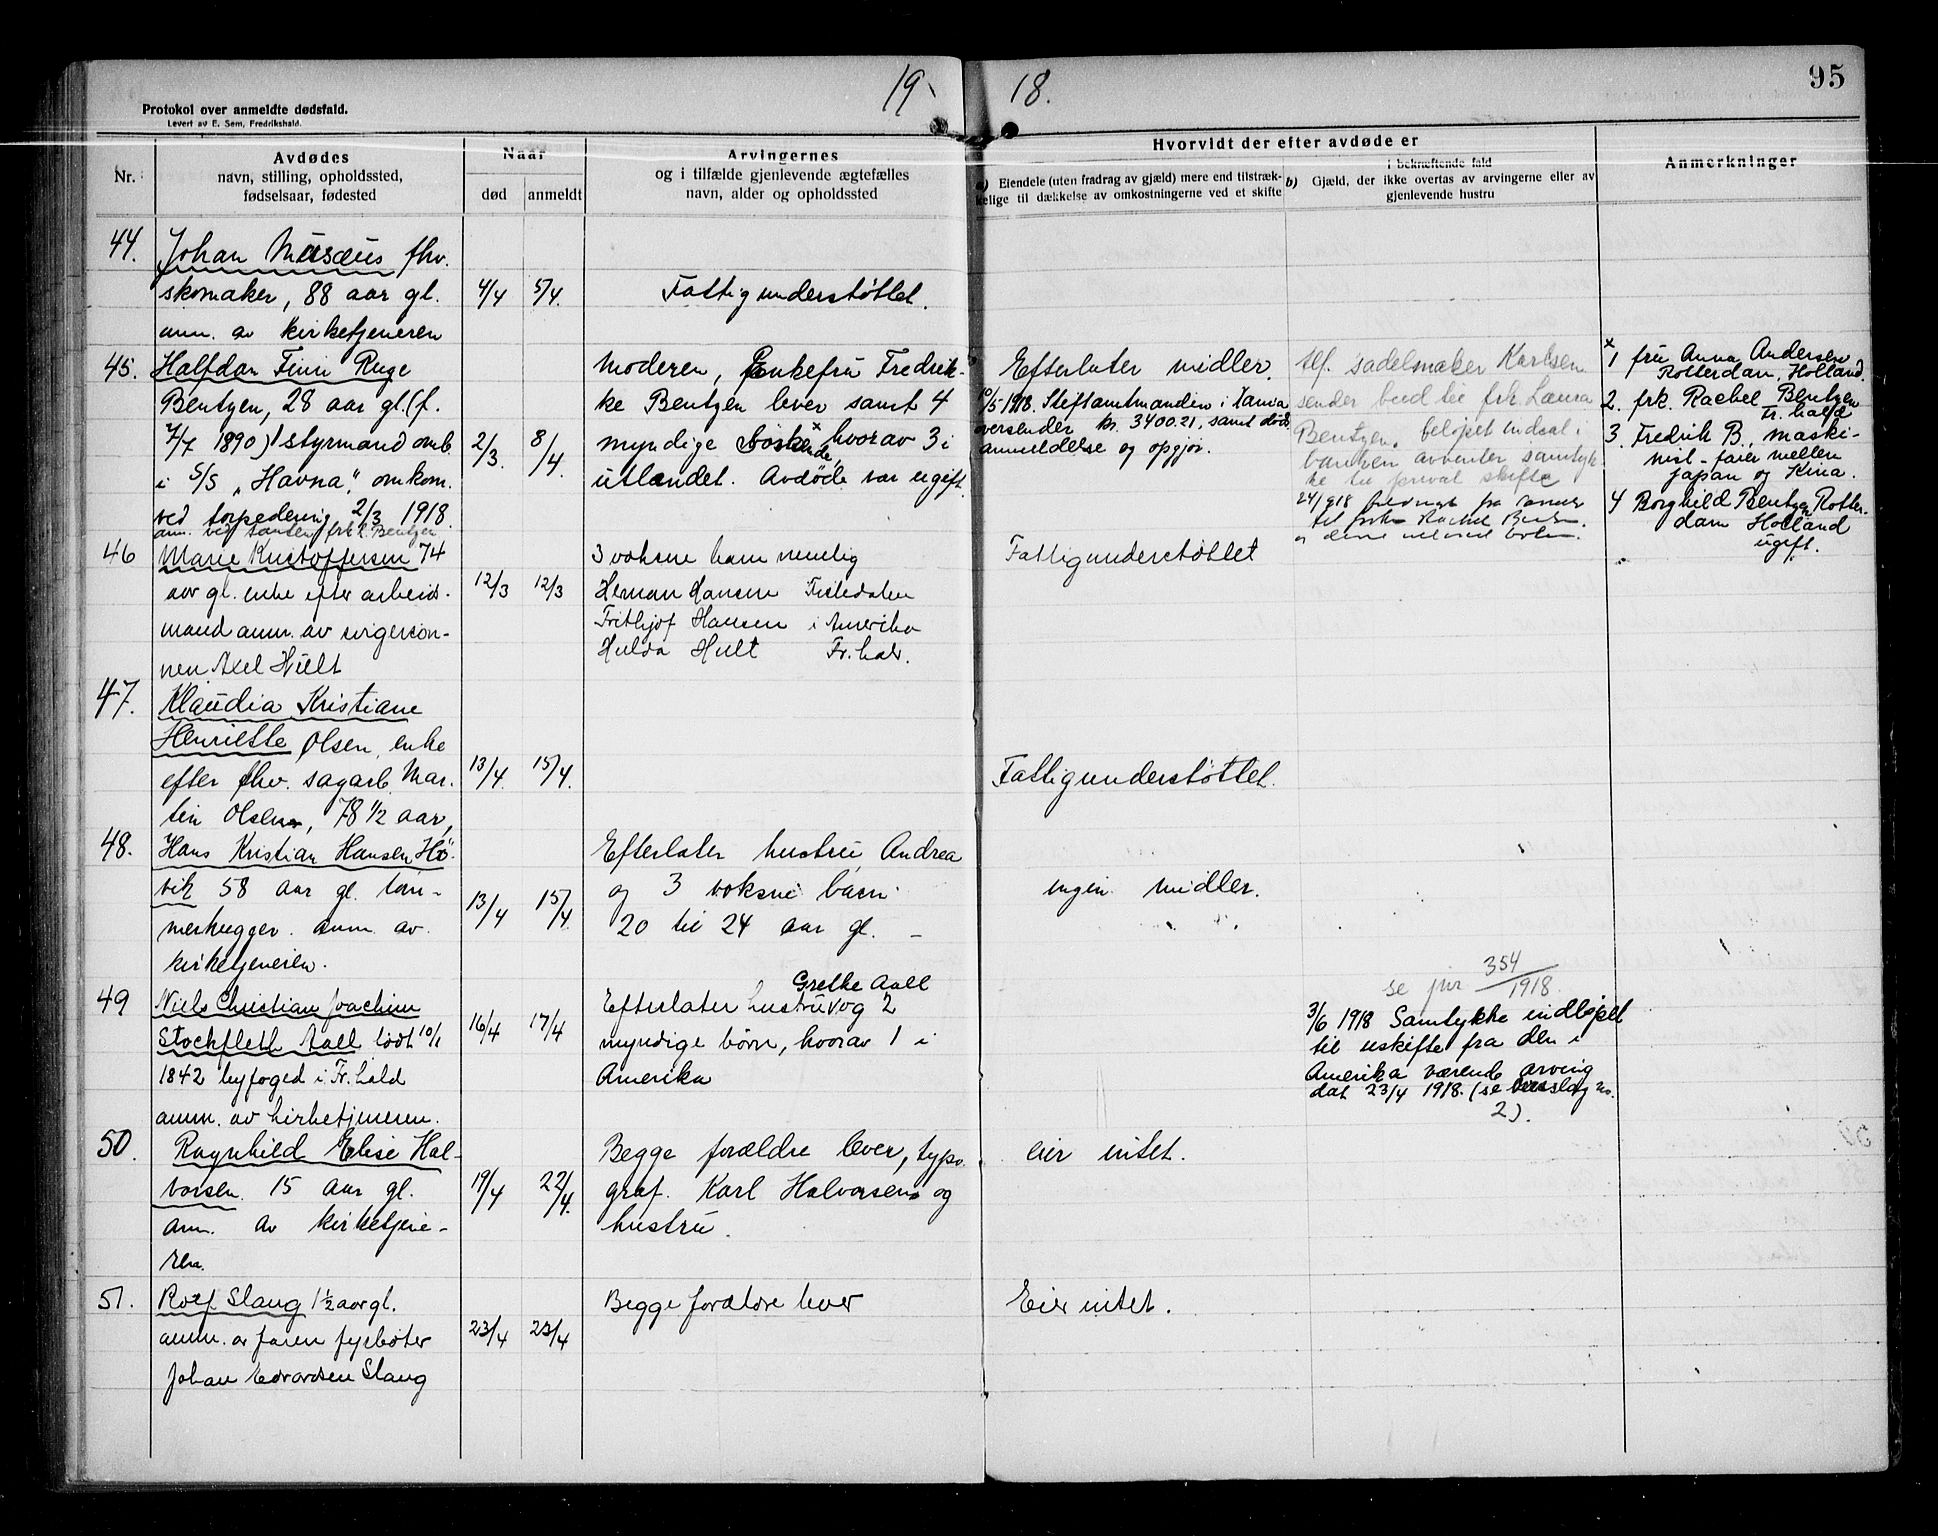 19 18.
95
Protokol over anmeldte dødsfald.
Levert av E. Sem, Fredrikshald.
Nr.
Avdødes
navn, stilling, opholdssted,
fødselsaar, fødested
Naar
død
anmeldt
Arvingernes
og i tilfælde gjenlevende ægtefælles
navn, alder og opholdssted
Hvorvidt der efter avdøde er
a) Eiendele (uten fradrag av gjæld) mere end tilstræk-
kelige til dækkelse av omkostningerne ved et skifte
i bekræftende fald
b) Gjæld, der ikke overtas av arvingerne eller av
gjenlevende hustru
Anmerkninger
44.
Johan Musæus fhv.
skomaker, 88 aar gl.
anm. av kirketjeneren
4/4
5/4.
Fattigunderstøttet.
45.
Halfdan Finn Ruge
Bentzen, 28 aar gl. (f.
7/7 1890) styrmand omb.
i S/S "Havna", omkom.
ved torpedering 2/3 1918.
anm. ved søsteren frk L. Bentzen
2/3.
8/4.
Moderen, Enkefru Fredrik-
ke Bentzen lever samt 4
myndige søskende x, hvorav 3 i
utlandet. Avdøde var ugift.
Efterlater midler.
/5 1918. Stiftamtmanden i
oversender kr. 3400.21, samt døds
anmeldelse og opgjør.
tlf. sadelmaker Karlsen
sender bud til frk Laura
Bentzen. beløpet indsat i
banken avventer samtyk
ke til privat skifte
24/ 918 fra
til frk Rachel
x
1 fru Anna Andersen
Rotterdam, Holland.
2. frk. Rachel Bentzen
Fr.hald
3. Fredrik B., maski-
nist - farer mellem
Japan og Kina.
4 Borghild Bentzen Rotter-
dam Holland
ugift.
46
Marie Kristoffersen 74
aar gl. enke efter arbeids-
mand anm. av svigersøn-
nen Axel Hult
12/3
12/3
3 voksne barn nemlig
Herman Hansen Tistedalen
Frithjof Hansen i Amerika
Hulda Hult Fr.hald.
Fattigunderstøttet
47.
Klaudia Kristiane
Henriette Olsen, enke
efter fhv. sagarb. Mar-
tin Olsen, 78 1/2 aar,
13/4.
15/4.
Fattigunderstøttet.
48.
Hans Kristian Hansen Hø-
vik 58 aar gl. tøm-
merhugger. anm. av
kirketjeneren.
13/4
15/4.
Efterlater hustru Andrea
og 3 voksne barn
20 til 24 aar gl. –
ingen midler.
49
Niels Christian Joachim
Stockfleth Aall født 10/1
1842 byfoged i Fr.hald
anm. av kirketjeneren.
16/4
17/4
Grethe Aall
Efterlater hustru v og 2
myndige børn, hvorav 1 i
Amerika
se jnr 354/1918.
3/6 1918 Samtykke indløpet
til uskifte fra den i
Amerika værende arving
dat 23/4 1918. (se no.
2).
50.
Ragnhild Elise Hal-
vorsen. 15 aar gl.
anm. av kirketjene-
ren.
19/4
22/4.
Begge forældre lever, typo
graf. Karl Halvorsen og
hustru.
eier intet.
51.
Rolf Slang 1 1/2 aar gl.
anm. av faren fyrbøter
Johan Edvardsen Slang
23/4
23/4
Begge forældre lever
Eier intet.